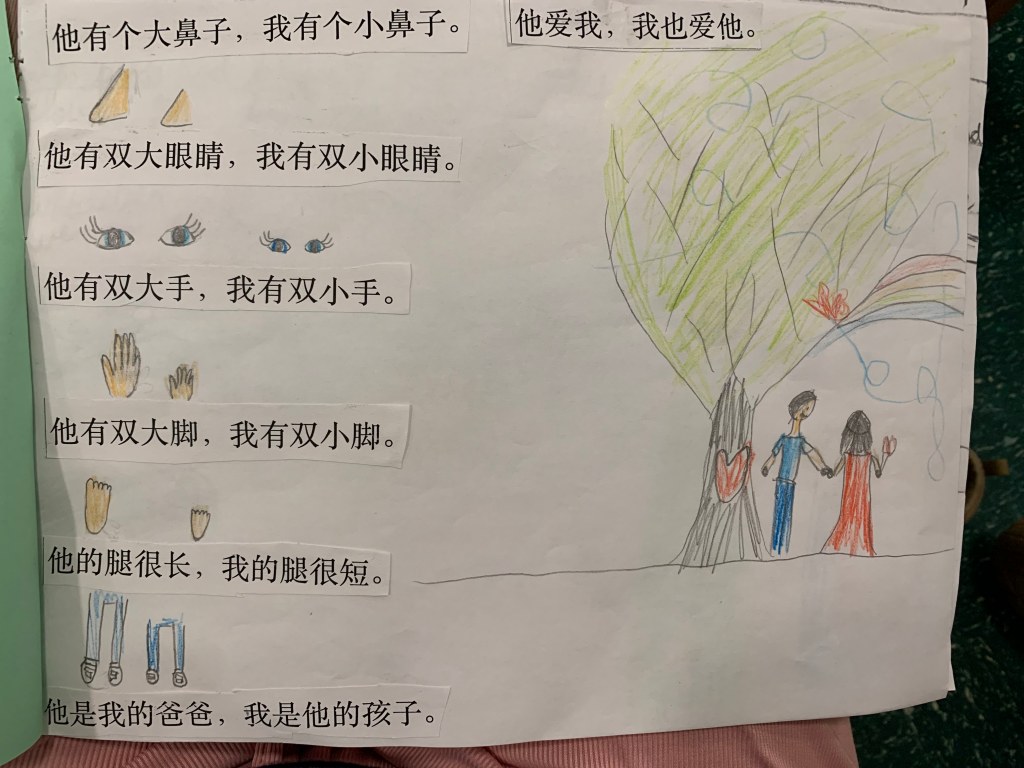 他有个大鼻子，我有个小鼻子。
他有双大眼睛，我有双小眼睛。
他有双大手，我有双小手。
他有双大脚，我有双小脚。
他的腿很长，我的腿很短。
他是我的爸爸，我是他的孩子。
他爱我，我也爱他。